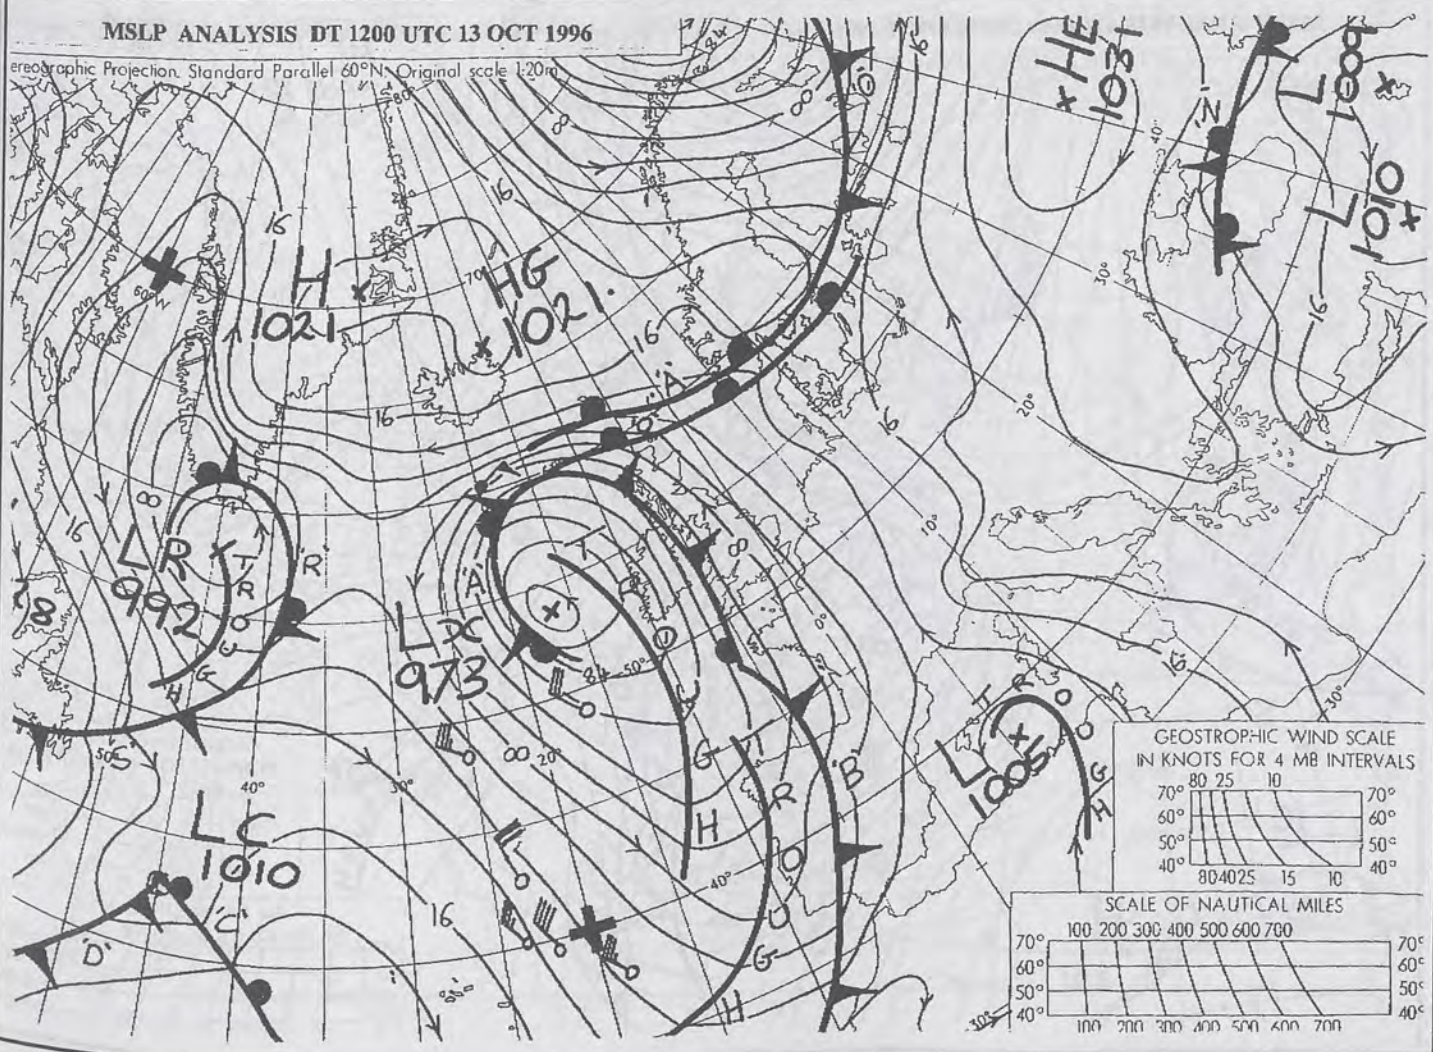 MSLP ANALYSIS DT 1200 UTC 13 OCT 1996
ereographic Projection. Standard Parallel 60°N. Original scale 1:20m
84
80°
8
8
16
16
16
HE
1031
L
1009
'Z'
40°
L
1010
30°
16
60°W
H
1021
70°
HG
1021.
16
16
'A'
16
20°
'Q'
16
8
LR
992
T
R
O
U
G
H
'R'
8
'A'
LX
973
T
R
O
U
G
H
8
10°
8
84
50°
16
30°
50°
'S'
40°
30°
8
20°
'B'
T
R
O
U
G
H
L
1005
T
R
O
U
G
H
LC
1010
'C'
'D'
16
40°
30°
GEOSTROPHIC WIND SCALE
IN KNOTS FOR 4 MB INTERVALS
80 25 10
70° 70°
60° 60°
50° 50°
40° 40°
80 40 25 15 10
SCALE OF NAUTICAL MILES
100 200 300 400 500 600 700
70° 70°
60° 60°
50° 50°
40° 40°
100 200 300 400 500 600 700